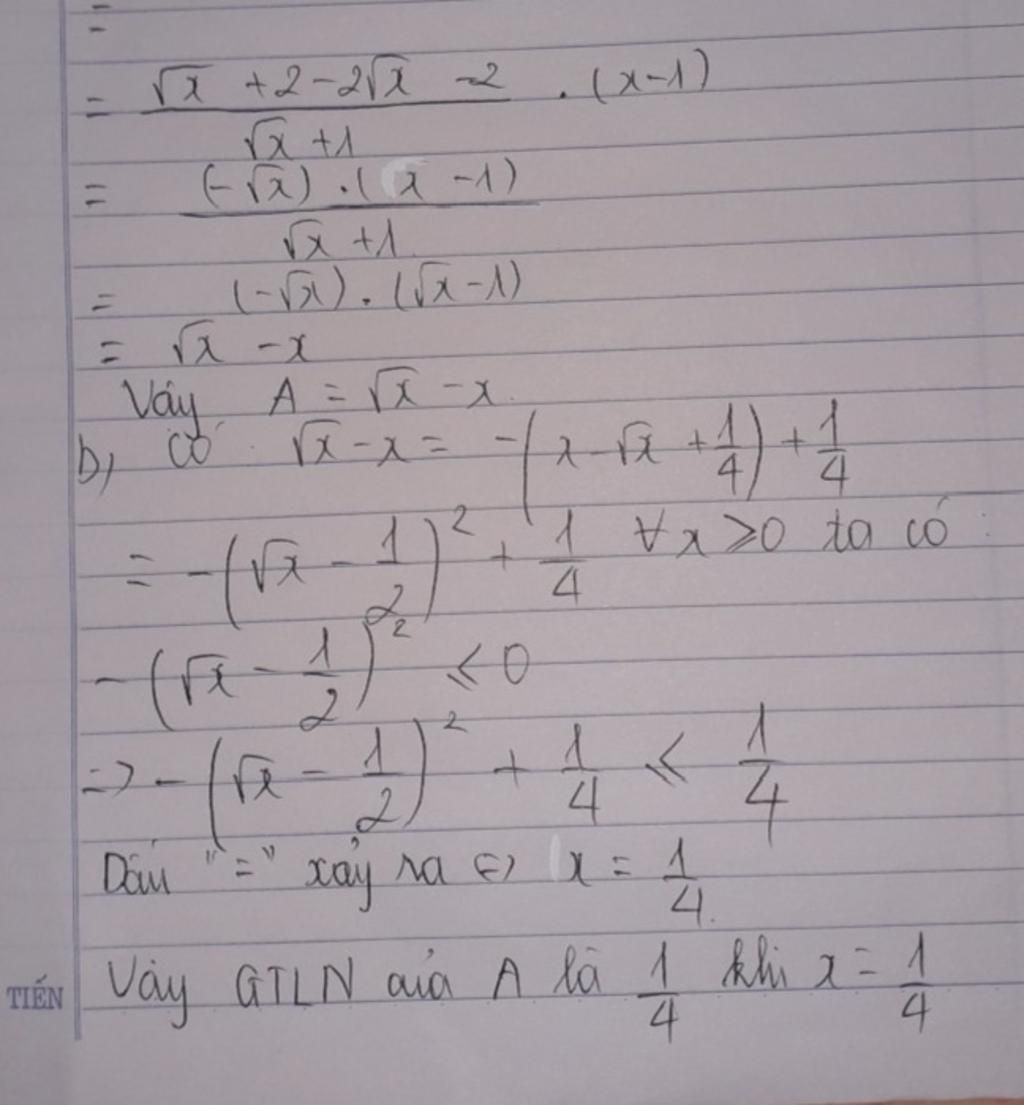 =
= (√x + 2 - 2√x - 2)/(√x + 1) . (x - 1)
= ((-√x) . (x - 1))/(√x + 1)
= (-√x) . (√x - 1)
= √x - x
Vậy A = √x - x.
b, Có √x - x = -(x - √x + 1/4) + 1/4
= -(√x - 1/2)² + 1/4 ∀x ⩾ 0 ta có :
-(√x - 1/2)² ⩽ 0
=> -(√x - 1/2)² + 1/4 ⩽ 1/4
Dấu "=" xảy ra <=> x = 1/4.
TIẾN
Vậy GTLN của A là 1/4 khi x = 1/4